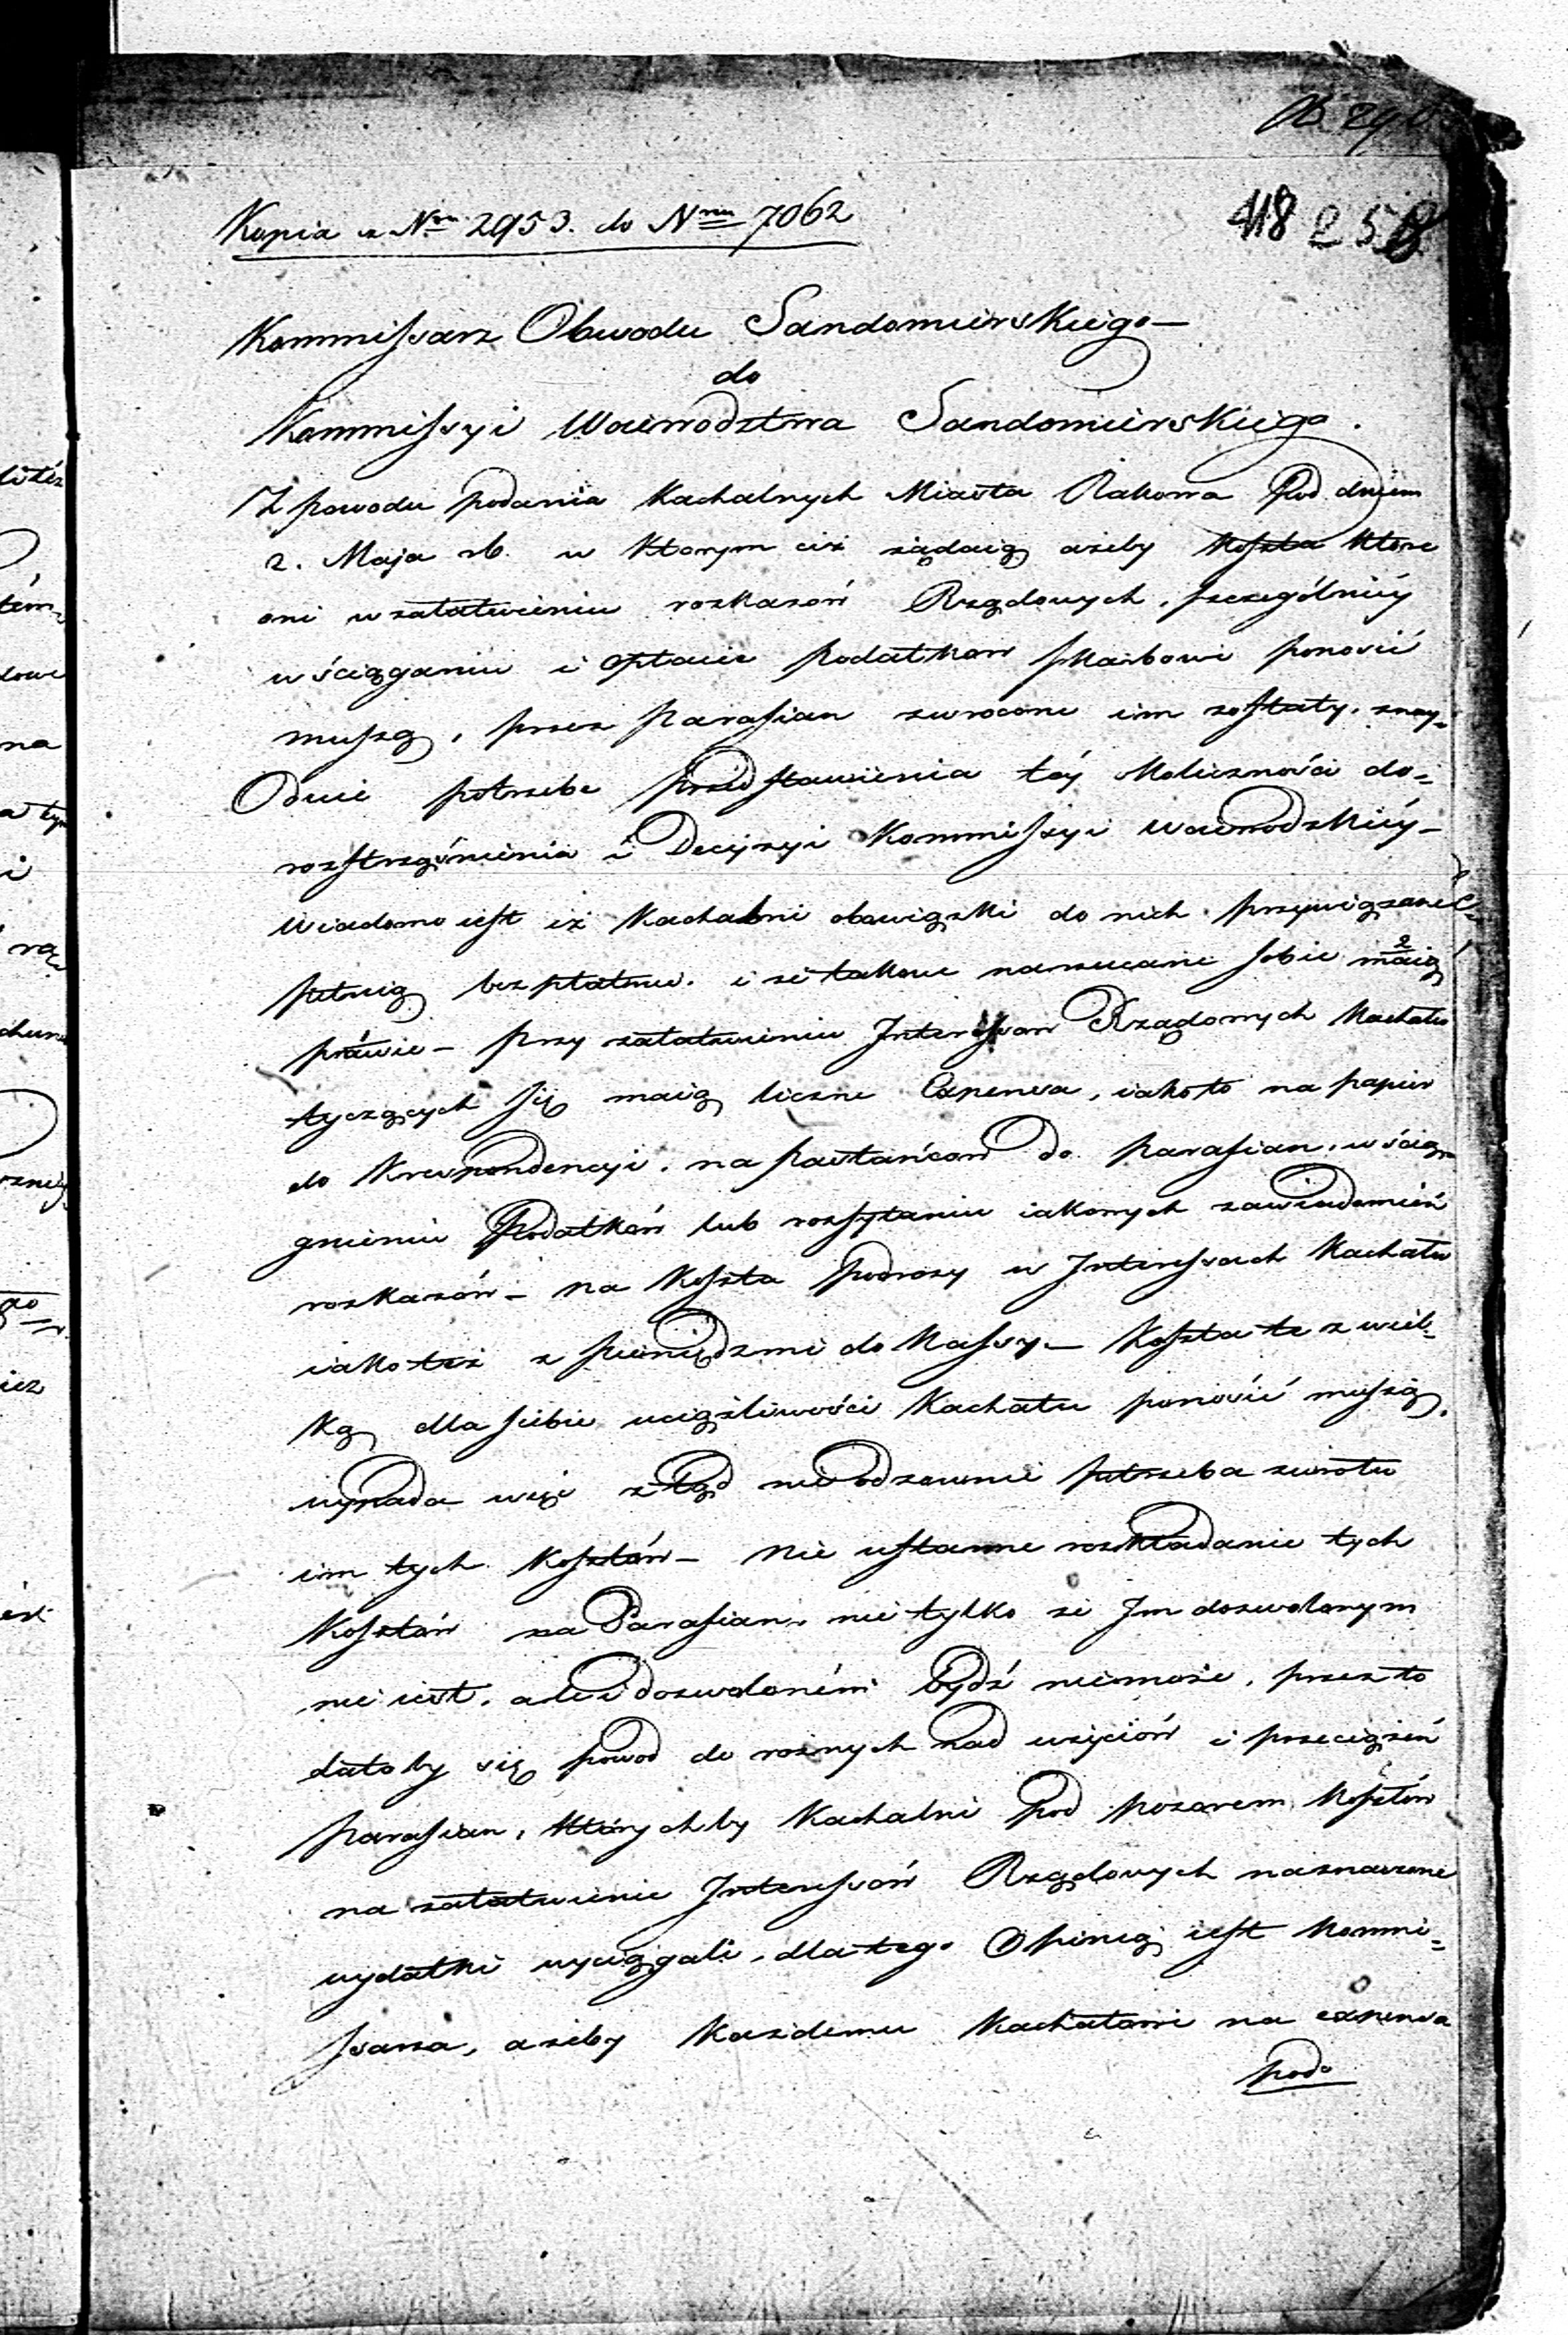 418 258
Kopia z Nru 2953. do Nru 7062
Kommissarz Obwodu Sandomierskiego—
do
Kommissyi Woiewodztwa Sandomierskiego.
Z powodu podania Kachalnych Miasta Rakowa Pod dniem
2. Maja rb. w ktorym ciż żądaią ażeby koszta ktore
oni w załatwieniu rozkazów Rządowych, szczególniéy
w ściąganiu i opłacie podatkow skarbowi ponosić
muszą, przez Parafian zwrocone im zostały. znay-
duie potrzebe przedstawienia téy okoliczności do-
rozstrzgśnienia i Decyzyi Kommissyi Woiewodzkiéy—
Wiadomo iest iż kachalni obowiązki do nich przywiązane
pełnią bezpłatnie. i że takowe narzucane sobie maią
prawie— przy załatwieniu Interessow Rządowych kachału
tyczących się maią liczne Expensa, iako to na papier
do Krespondencyi. na posłańcow do parafian. w ścią-
gnieniu Podatków lub rozsyłaniu iakowych zawiadomień
rozkazów— na koszta podrozy w Interessach kachału
iako też z pieniędzmi do kassy— koszta te z wiel-
ką dla siebie uciążliwości kachału ponosić muszą.
wypada więc ztąd nieodzownie potrzeba zwrotu
im tych kosztów— nie ustanne rozkładanie tych
kosztów na Parafian, nie tylko że Im dozwolonym
nie iest. ale i dozwolonémi bydź niemoże, przez to
dałoby się powod do roznych nad użyciów i przeciążeń
parafian, którychby kachalni pod pozorem kosztów
na załatwienie Interessów Rządowych naznaczone
wydatki wyciągali, dla tego Opinią iest kommi-
ssarza, ażeby każdemu kachałowi na expensa
podo